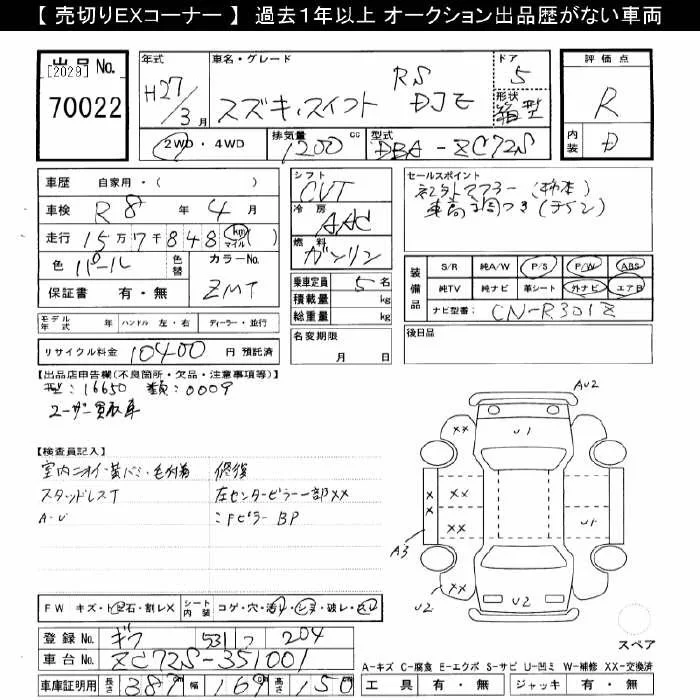 【 売切りEXコーナー 】 過去1年以上 オークション出品歴がない車両
出品No.
[2029]
70022
年式
H27/3月
車名・グレード
スズキ,スイフト RS DJE
ドア 5
形状 箱型
2WD・4WD
排気量 1200 cc
型式 DBA-ZC72S
評価点 R
内装 D
車歴 自家用・( )
車検 R8 年 4 月
走行 15万7千848 (km マイル)
色 パール 色替
カラーNo. ZMT
保証書 有・無
モデル年式 年 ハンドル 左・右 ディーラー・並行
リサイクル料金 10400 円 預託済
シフト CVT
冷房 AAC
燃料 ガソリン
乗車定員 5 名
積載量 kg
総重量 kg
名変期限 月 日
セールスポイント
社外マフラー(柿本)
車高調つき(テイン)
装備品
S/R 純A/W P/S P/W ABS
純TV 純ナビ 革シート 外ナビ エアB
ナビ型番: CN-R301Z
後日品
【出品店申告欄(不良箇所・欠品・注意事項等)】
型:16650 類:0009
ユーザー買取車
【検査員記入】
室内ニオイ・黄バミ・毛付着
スタッドレスT
A・U
修復
左センターピラー一部XX
〃FピラーBP
AU2
XX
U1
XX
X
XX
X
XX
U1
A3
XX
U2
U2
スペア
FW キズ・ト飛石・割レX シート内装 コゲ・穴・汚レ・ヒヌ・破レ・
登録No. ギフ 531 つ 204
車台No. ZC72S-351001
車庫証明用 長さ 387 cm 幅 169 cm 高さ 150 cm
A-キズ C-腐食 E-エクボ S-サビ U-凹ミ W-補修 XX-交換済
工具 有・無 ジャッキ 有・無